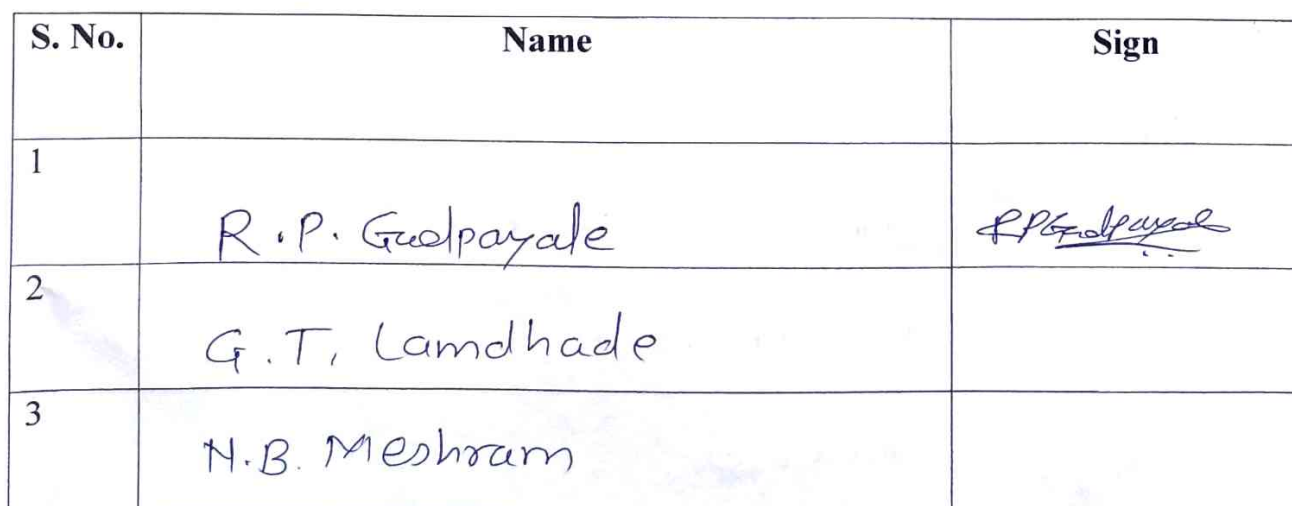 S. No. Name Sign
1
R.P. Gudpayale RPGudpayale
2
G.T. Lamdhade
3
N.B. Meshram